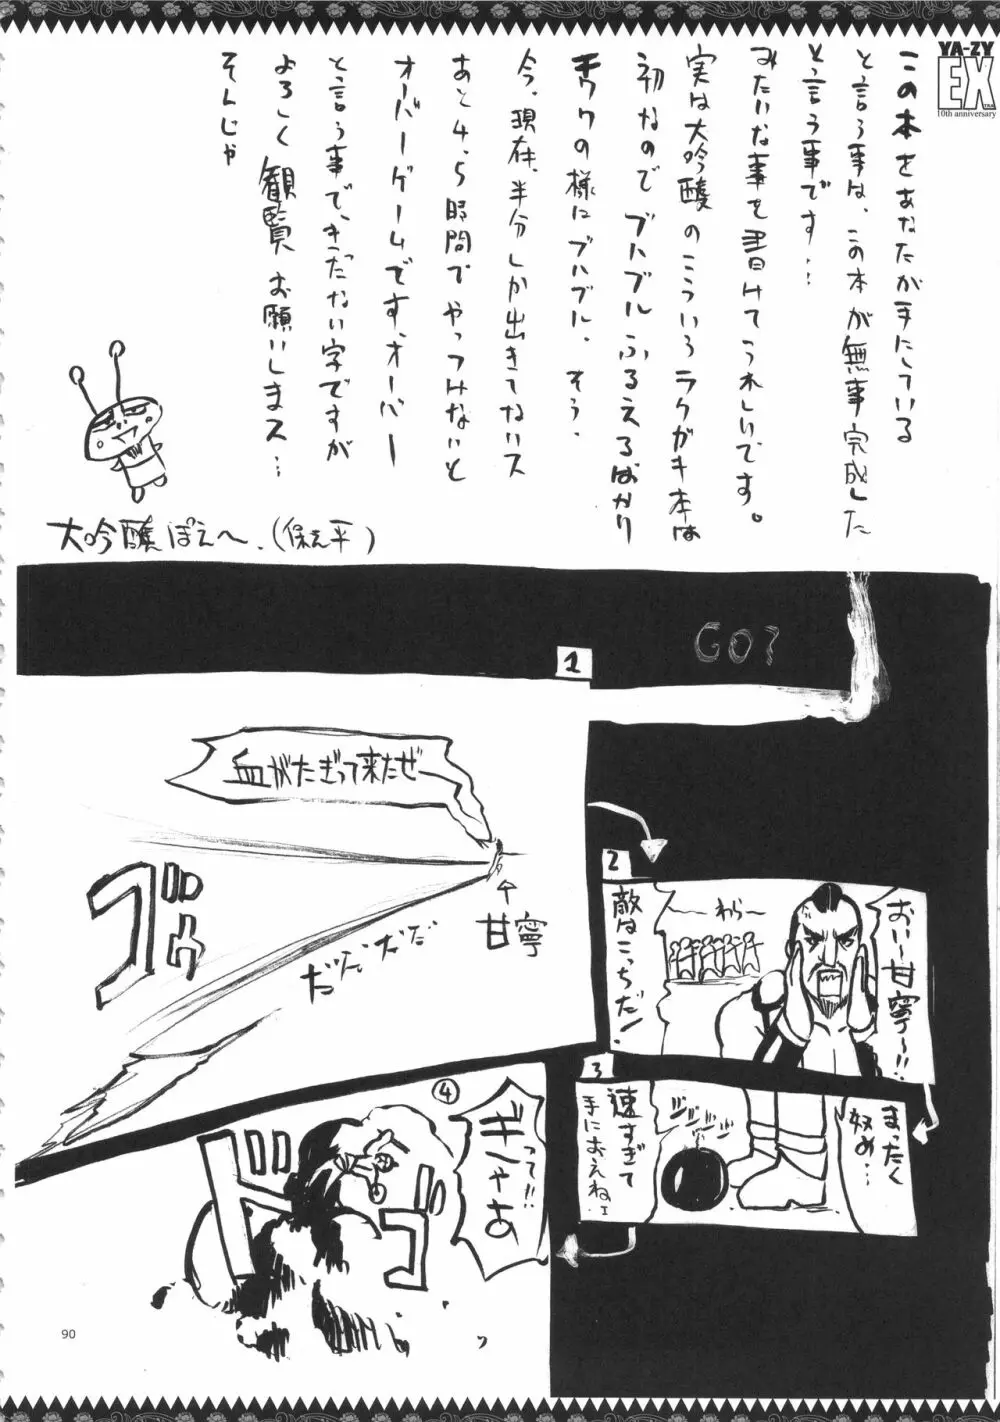 YA-ZY
EX
TRA
10th anniversary
この本をあなたが手にしている
と言う事は、この本が無事完成した
と言う事です…
みたいな事を書けてうれしいです。
実は大吟醸のこういうラクガキ本は
初なのでブルブルふるえるばかり
チワワの様にブルブル、そう、
今、現在、半分しか出きてないス
あと4、5時間でやっつけないと
オーバーゲームです、オーバー
と言う事で、きったない字ですが
よろしく観覧お願いしまス…
そんじゃ
大吟醸ぽえ〜、(保え平)
GO?
1
血がたぎって来たぜ
甘寧
だだだだ
ゴゥ
2
おい〜甘寧〜!!
わら〜
敵はこっちだ!
3
まったく
奴め…
ジジジ
速すぎて
手におえねェ
④
ぎゃあ
って!!
ドゴ
90